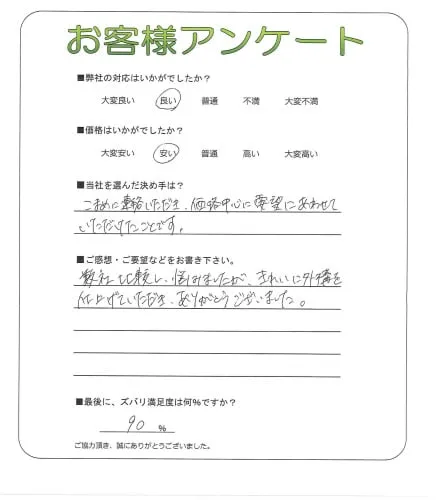 お客様アンケート
■弊社の対応はいかがでしたか?
大変良い 良い 普通 不満 大変不満
■価格はいかがでしたか?
大変安い 安い 普通 高い 大変高い
■当社を選んだ決め手は?
こまめに連絡いただき、価格中心に要望にあわせて
いただけたことです。
■ご感想・ご要望などをお書き下さい。
数社比較し、悩みましたが、きれいに外構を
仕上げていただき、ありがとうございました。
■最後に、ズバリ満足度は何%ですか?
90 %
ご協力頂き、誠にありがとうございました。